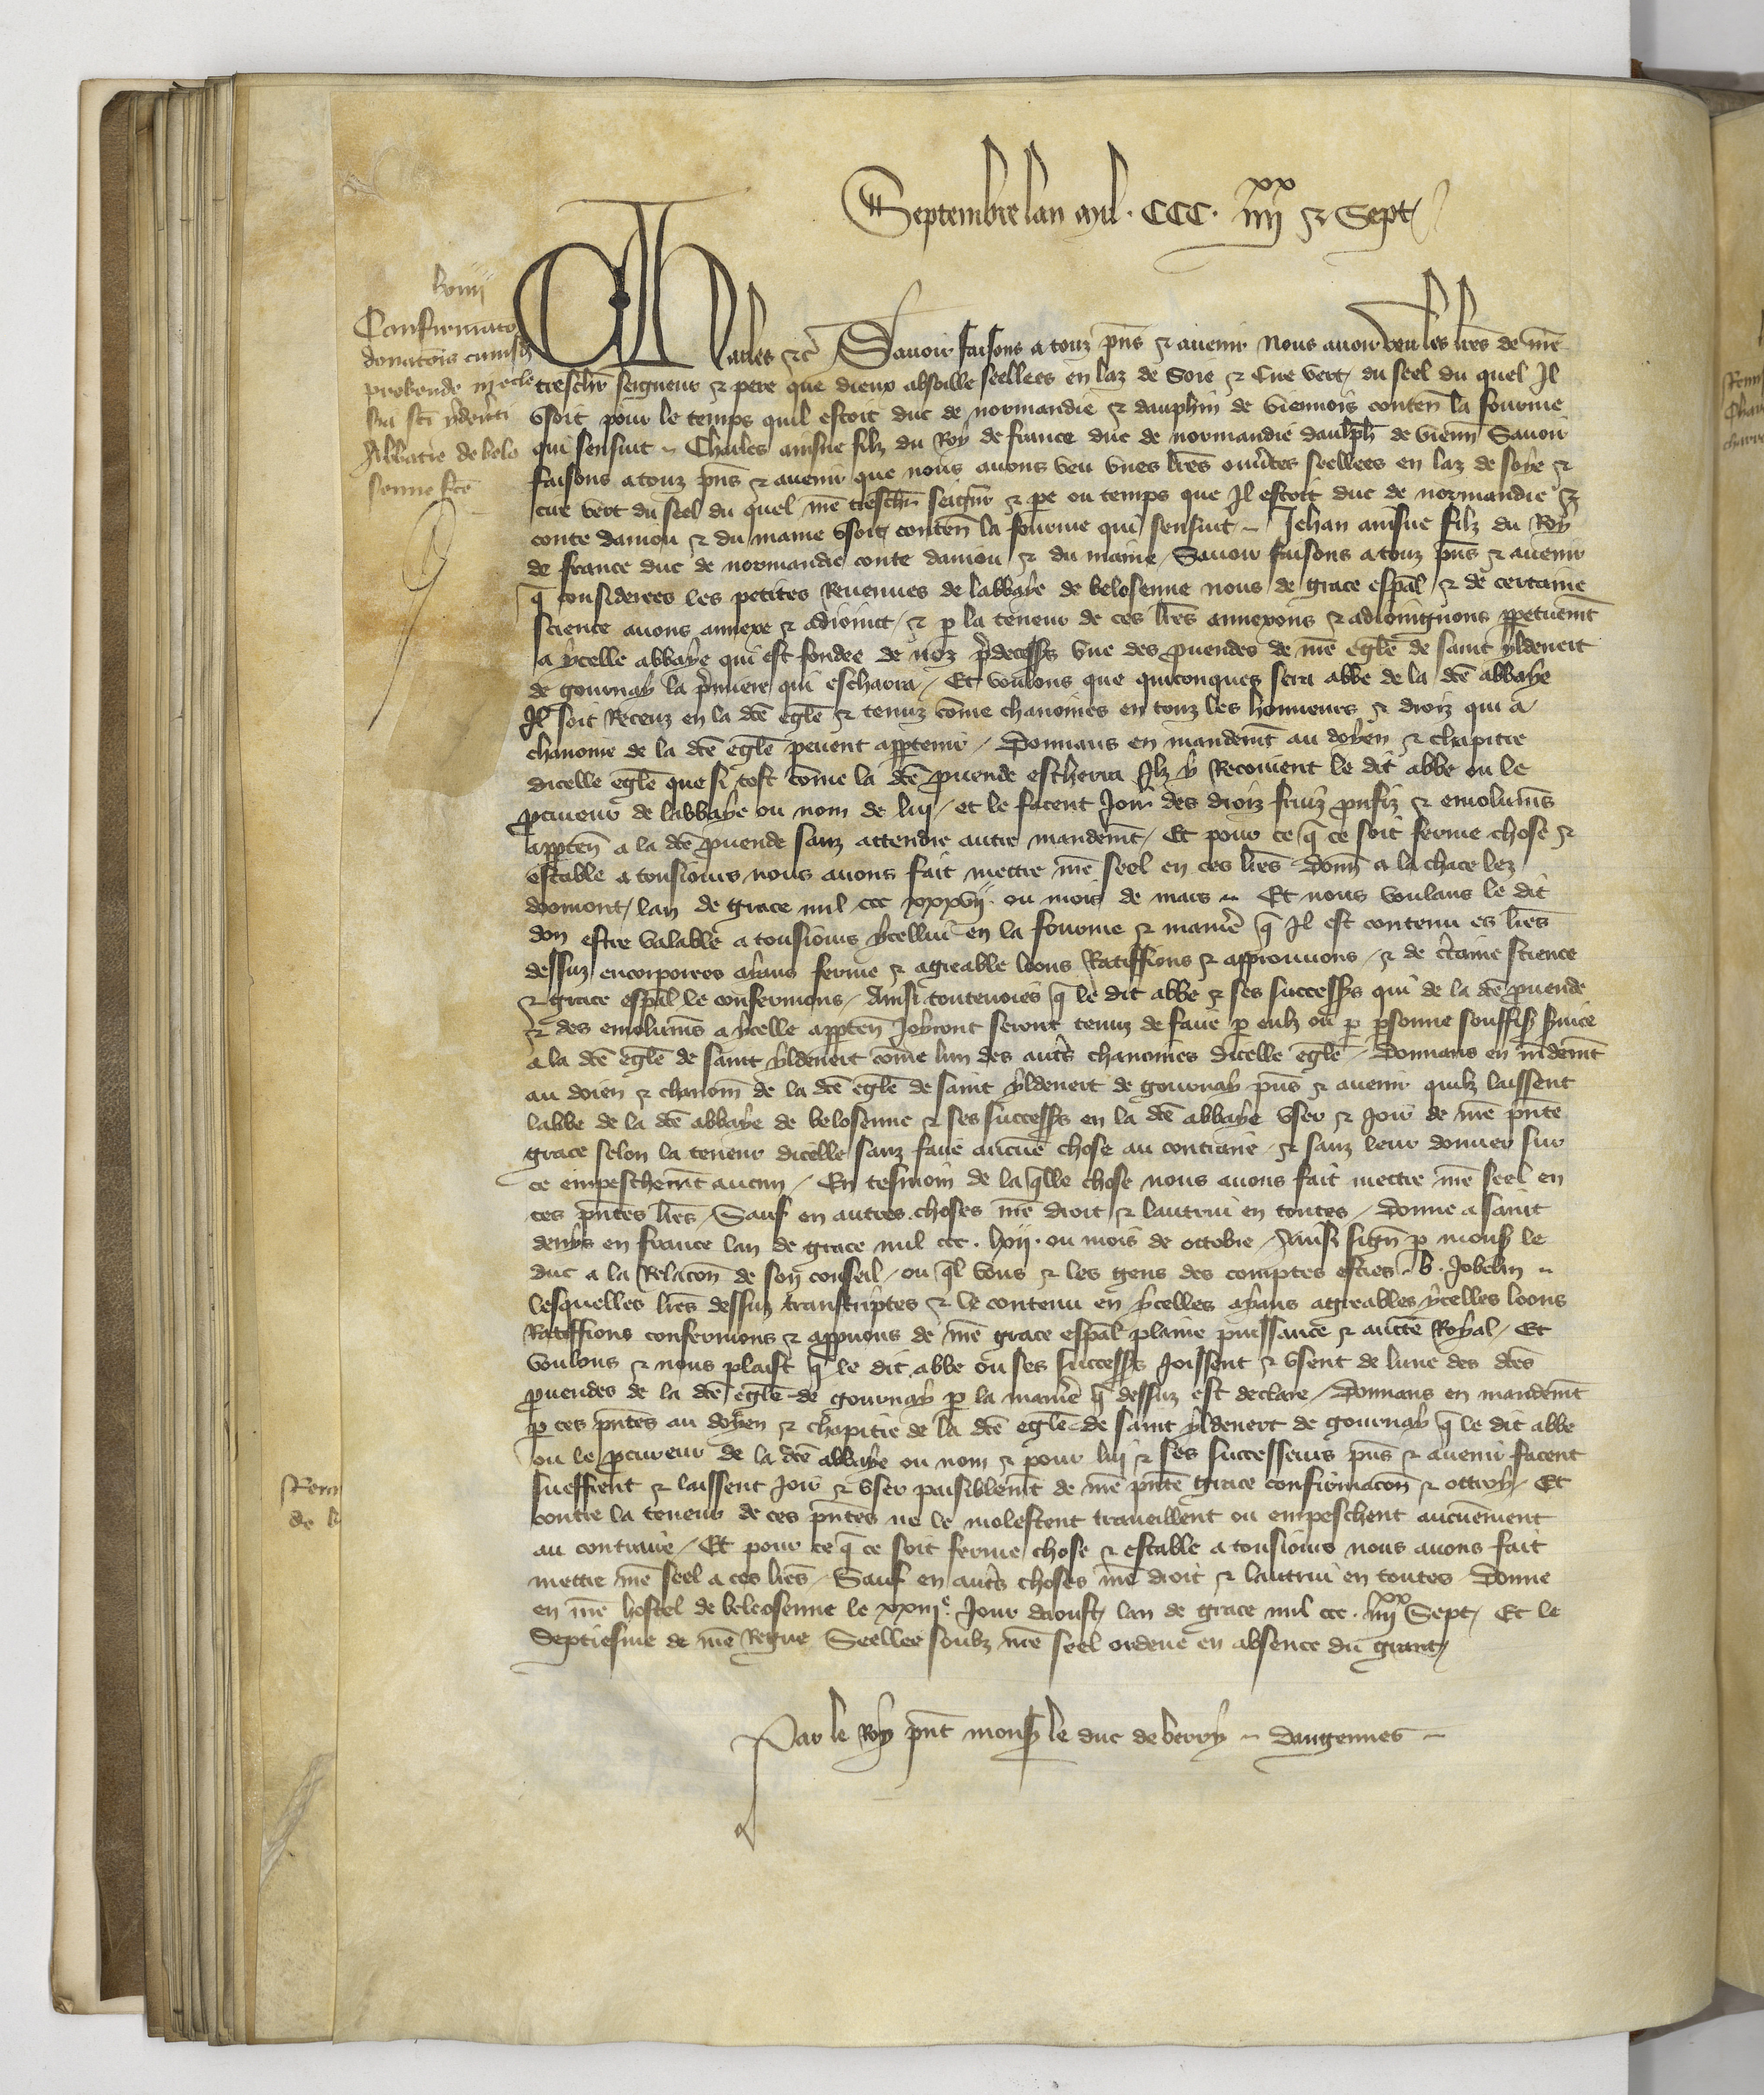 Septembre lan mil. CCC. IIII xx & Sept
lxiiij
Confirmatio
donacõis cuiusd
prebende in eccle
sia sci yldeuti
Abbatie de belo
senne fcẽ
Charles &c̃ Sauoir faisons a touz pñs & auenir Nous auoir veu les lr̃es de nr̃e
treschr̃ seigneur & pere que dieux absoille seellees en laz de Soie & Cire vert du seel du quel Il
vsoit pour le temps quil estoit duc de normandie & dauphin de viennois conteñ la fourme
qui sensuit ~ Charles ainsne filz du Roy de france duc de normandie daulph̃ de vienñ Sauoir
faisons a touz pñs & auenir que nous auons veu vnes lr̃es ouũtes seellees en laz de soye &
cire vert du seel du quel nr̃e treschr̃ seignr̃ & pe ou temps que Il estoit duc de normandie &
conte daniou & du maine vsoit conteñ la fourme qui sensuit ~ Jehan ainsne filz du Roy
de france duc de normandie conte daniou & du maine / Sauoir faisons a touz pñs & auenir
q̃ considerees les petites Reuenues de labbaye de belosenne nous de grace esp̃al & de certaine
science auons annexe & adioinct / & p la teneur de ces lr̃es annexons & adioingnons ppetuelmt̃
a ycelle abbaye qui est fondee de noz p̃decess̃s vne des puendes de nr̃e egl̃e de saint yldeuert
de gournay la p̃miere qui escharra / Et voulons que quiconques sera abbe de la dc̃e abbaye
Il soit Receuz en la dc̃e egl̃e & tenuz cõme chanoines en touz les honneurs & droiz qui a
chanoine de la dc̃e egl̃e peuent apptenir / Donnans en mandemt̃ au doyen & chapitre
dicelle egl̃e que si tost cõme la dc̃e puende escherra Ilz y Recoiuent le dit abbe ou le
pcureur de labbaye ou nom de luy / et le facent Joir des droiz fruiz prufiz & emolumẽs
apptẽn a la dc̃e puende sanz attendre autre mandemt̃ / Et pour ce q̃ ce soit ferme chose &
estable a tousiours nous auons fait mettre nr̃e seel en ces lr̃es Donñ a la chace lez
doomont / lan de grace mil ccc xxxvij ou mois de mars ~ Et nous voulans le dit
don estre valable a tousiours ycellui en la fourme & manie͂ q̃ Il est contenu es lr̃es
dessuz encorporees ayans ferme & agreable loons Ratiffions & approuuons / & de c̃taine science
& grace esp̃al le confermons / Ainsi toutenoies q̃ le dit abbe & ses success̃s qui de la dc̃e puende
& des emolumẽs a ycelle apptẽn Joyront seront tenuz de faire p eulz ou p psonne souffis̃ s̃uice
a la dc̃e egl̃e de saint yldeuert cõme lun des autr̃s chanoines dicelle egl̃e / Donnans en mãdemt̃
au doien & chanoiñ de la dc̃e egl̃e de saint yldeuert de gournay pñs & auenir quilz laissent
labbe de la dc̃e abbaye de belosenne & ses success̃s en la dc̃e abbaye vser & Joir de nr̃e pñte
grace selon la teneur dicelle sanz faire aucune chose au contraire & sanz leur donner sur
ce empeschemt̃ aucun / En tesmoin de la q̃lle chose nous auons fait mettre nr̃e seel en
ces pñtes lr̃es / Sauf en autres choses nr̃e droit & lautrui en toutes / Donne a saint
denys en france lan de grace mil ccc. lvij. ou mois de octobre / Ainsi sigñ p mons̃ le
duc a la Relacõn de son conseil / ou q̃l vous & les gens des comptes estiez. b. Jobelin ~
lesquelles lr̃es dessuz transcriptes & le contenu en ycelles ayans agreables ycelles loons
Ratiffions confermons & appuuons de nr̃e grace esp̃al plaine puissance & auctc̃e Royal / Et
voulons & nous plaist q̃ le dit abbe ou ses success̃s Joissent & vsent de lune des dc̃es
puendes de la dc̃e egl̃e de gournay p la manie͂ q̃ dessuz est declare / Donnans en mandemt̃
p ces pñtes au doyen & chapitre de la dc̃e egl̃e de saint yldeuert de gournay q̃ le dit abbe
ou le pcureur de la dc̃e abbaye ou nom & pour luy & ses successeurs pñs & auenir facent
sueffrent & laissent Joir & vser paisiblemt̃ de nr̃e pñte grace confirmacõn & ottroy / Et
contre la teneur de ces pñtes ne le molestent trauaillent ou empeschent aucunement
au contraire / Et pour ce q̃ ce soit ferme chose & estable a tousiours nous auons fait
mettre nr̃e seel a ces lr̃es / Sauf en autr̃s choses nr̃e droit & lautrui en toutes Donne
en nr̃e hostel de beleosenne le xxiiij e Jour daoust / lan de grace mil ccc. IIII xx Sept / Et le
Septiesme de nr̃e Regne Seellee soubz nr̃e seel ordene en absence du grant /
Par le Roy pñt mons̃ le duc de berry ~ Dangennes ~